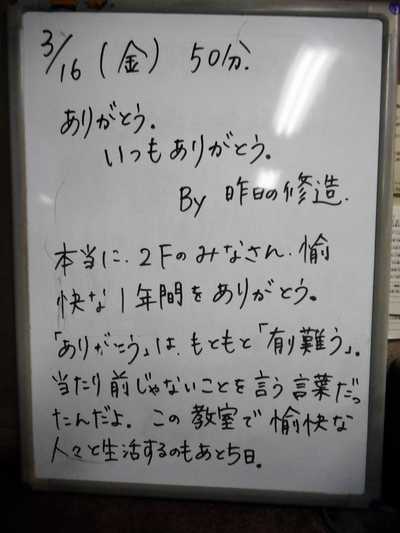 3/16(金) 50分.
ありがとう。
いつもありがとう。
By 昨日の修造.
本当に、2Fのみなさん、愉
快な1年間をありがとう。
「ありがとう」は、もともと「有り難う」。
当たり前じゃないことを言う言葉だっ
たんだよ。この教室で愉快な
人々と生活するのもあと5日。